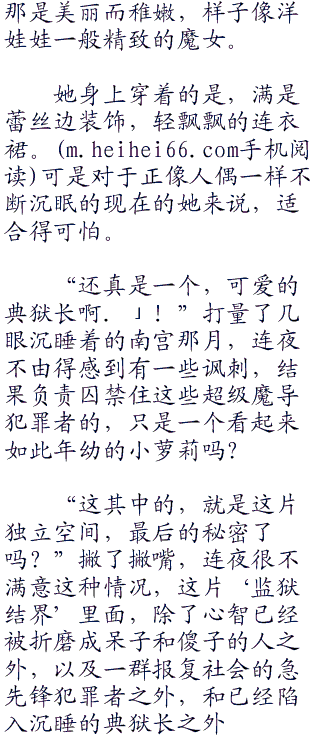 那是美丽而稚嫩，样子像洋
娃娃一般精致的魔女。
她身上穿着的是，满是
蕾丝边装饰，轻飘飘的连衣
裙。(m.heihei66.com手机阅
读)可是对于正像人偶一样不
断沉眠的现在的她来说，适
合得可怕。
“还真是一个，可爱的
典狱长啊．」！”打量了几
眼沉睡着的南宫那月，连夜
不由得感到有一些讽刺，结
果负责囚禁住这些超级魔导
犯罪者的，只是一个看起来
如此年幼的小萝莉吗？
“这其中的，就是这片
独立空间，最后的秘密了
吗？”撇了撇嘴，连夜很不
满意这种情况，这片‘监狱
结界’里面，除了心智已经
被折磨成呆子和傻子的人之
外，以及一群报复社会的急
先锋犯罪者之外，和已经陷
入沉睡的典狱长之外